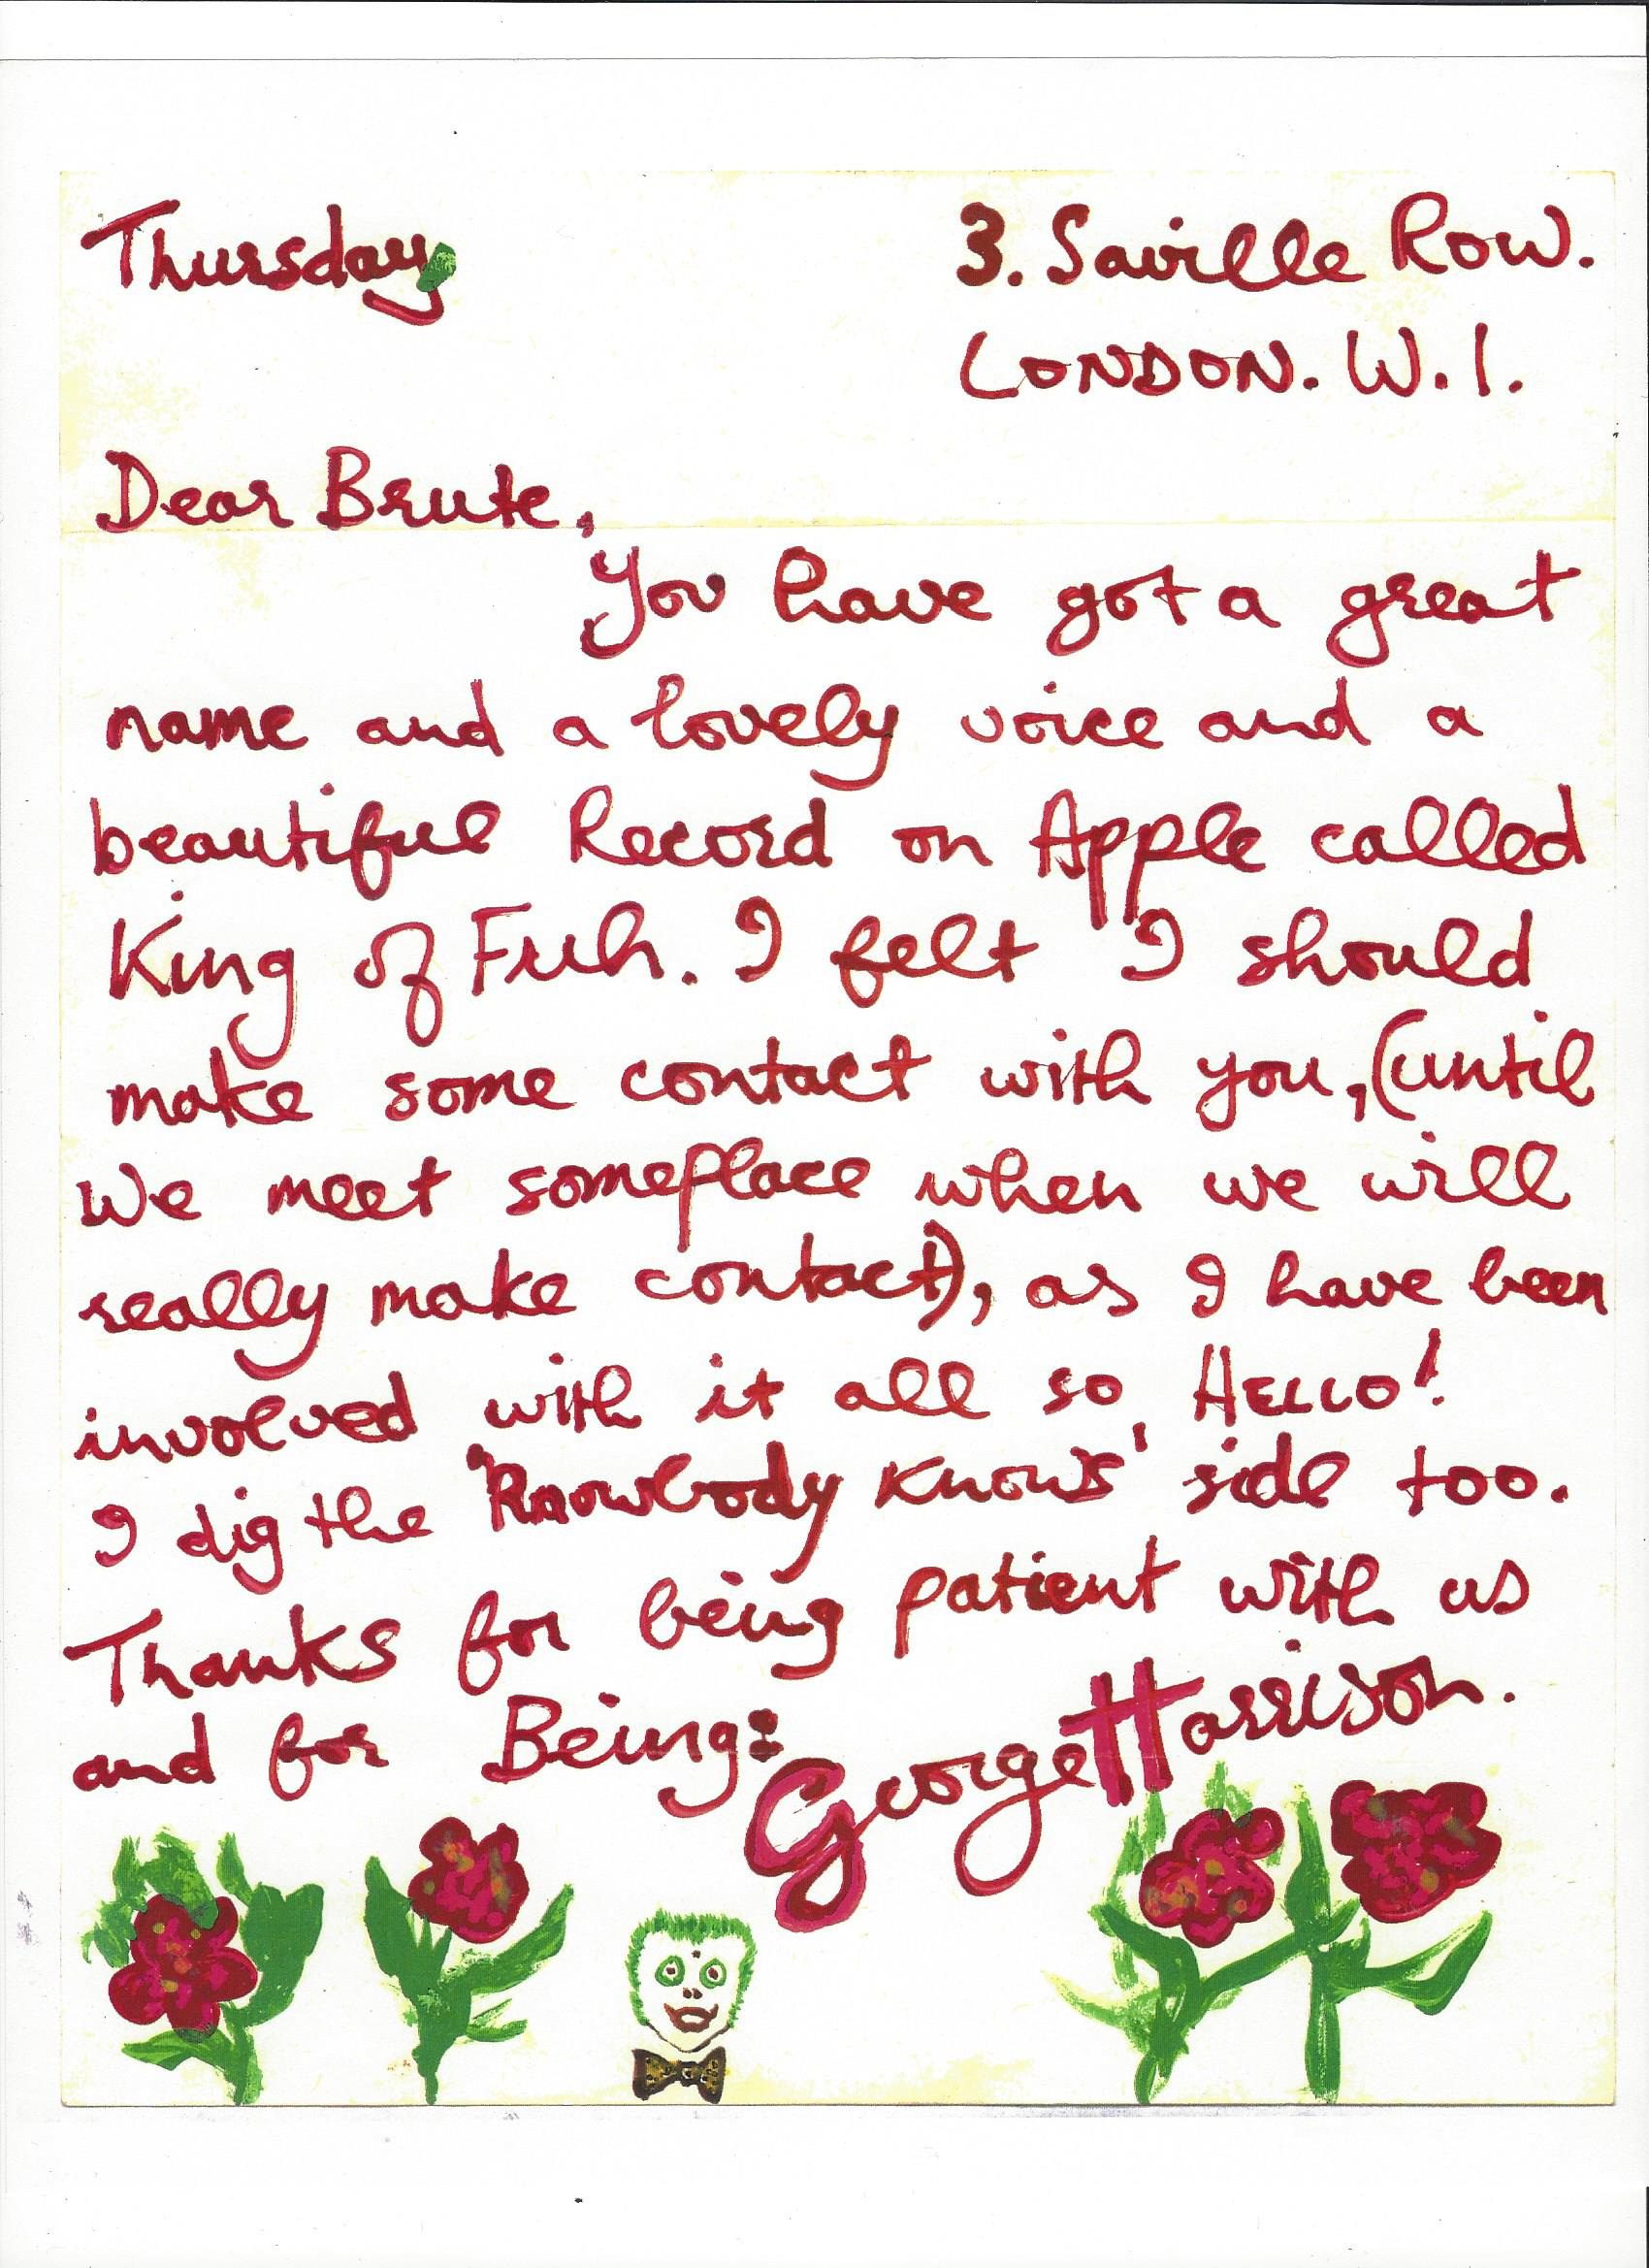 Thursday
3. Saville Row.
LONDON. W.1.
Dear Brute,
You have got a great
name and a lovely voice and a
beautiful Record on Apple called
King of Fuh. I felt I should
make some contact with you, (until
we meet someplace when we will
really make contact), as I have been
involved with it all so, HELLO!
I dig the 'Knowbody Knows' side too.
Thanks for being patient with us
and for Being:
George Harrison.